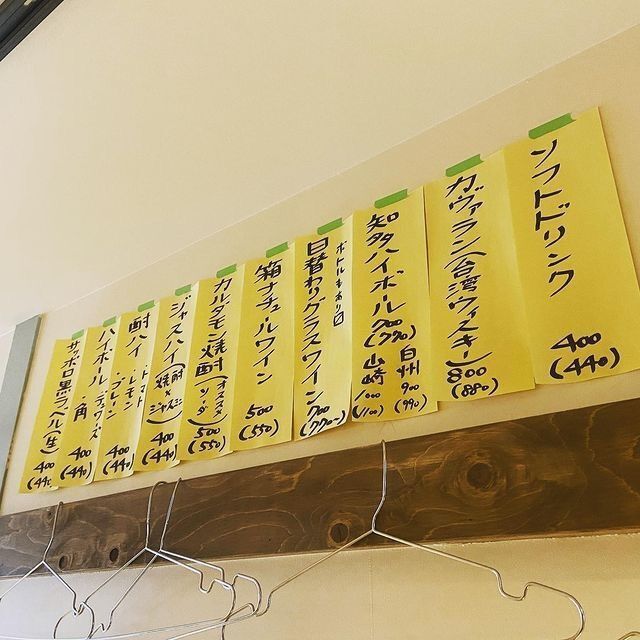 ソフトドリンク
400
(440)
カヴァラン(台湾ウィスキー)
800
(880)
知多ハイボール
700
(770)
白州
900
(990)
山崎
1000
(1100)
ボトルもあり〼
日替わりグラスワイン
700
(770)
箱ナチュルワイン
500
(550)
カルダモン焼酎(オススメ ソーダ)
500
(550)
ジャスハイ(焼酎×ジャスミン)
400
(440)
酎ハイ
・トマト
・レモン
・プレーン
400
(440)
ハイボール
・デュワーズ
・角
400
(440)
サッポロ黒ラベル(生)
400
(440)